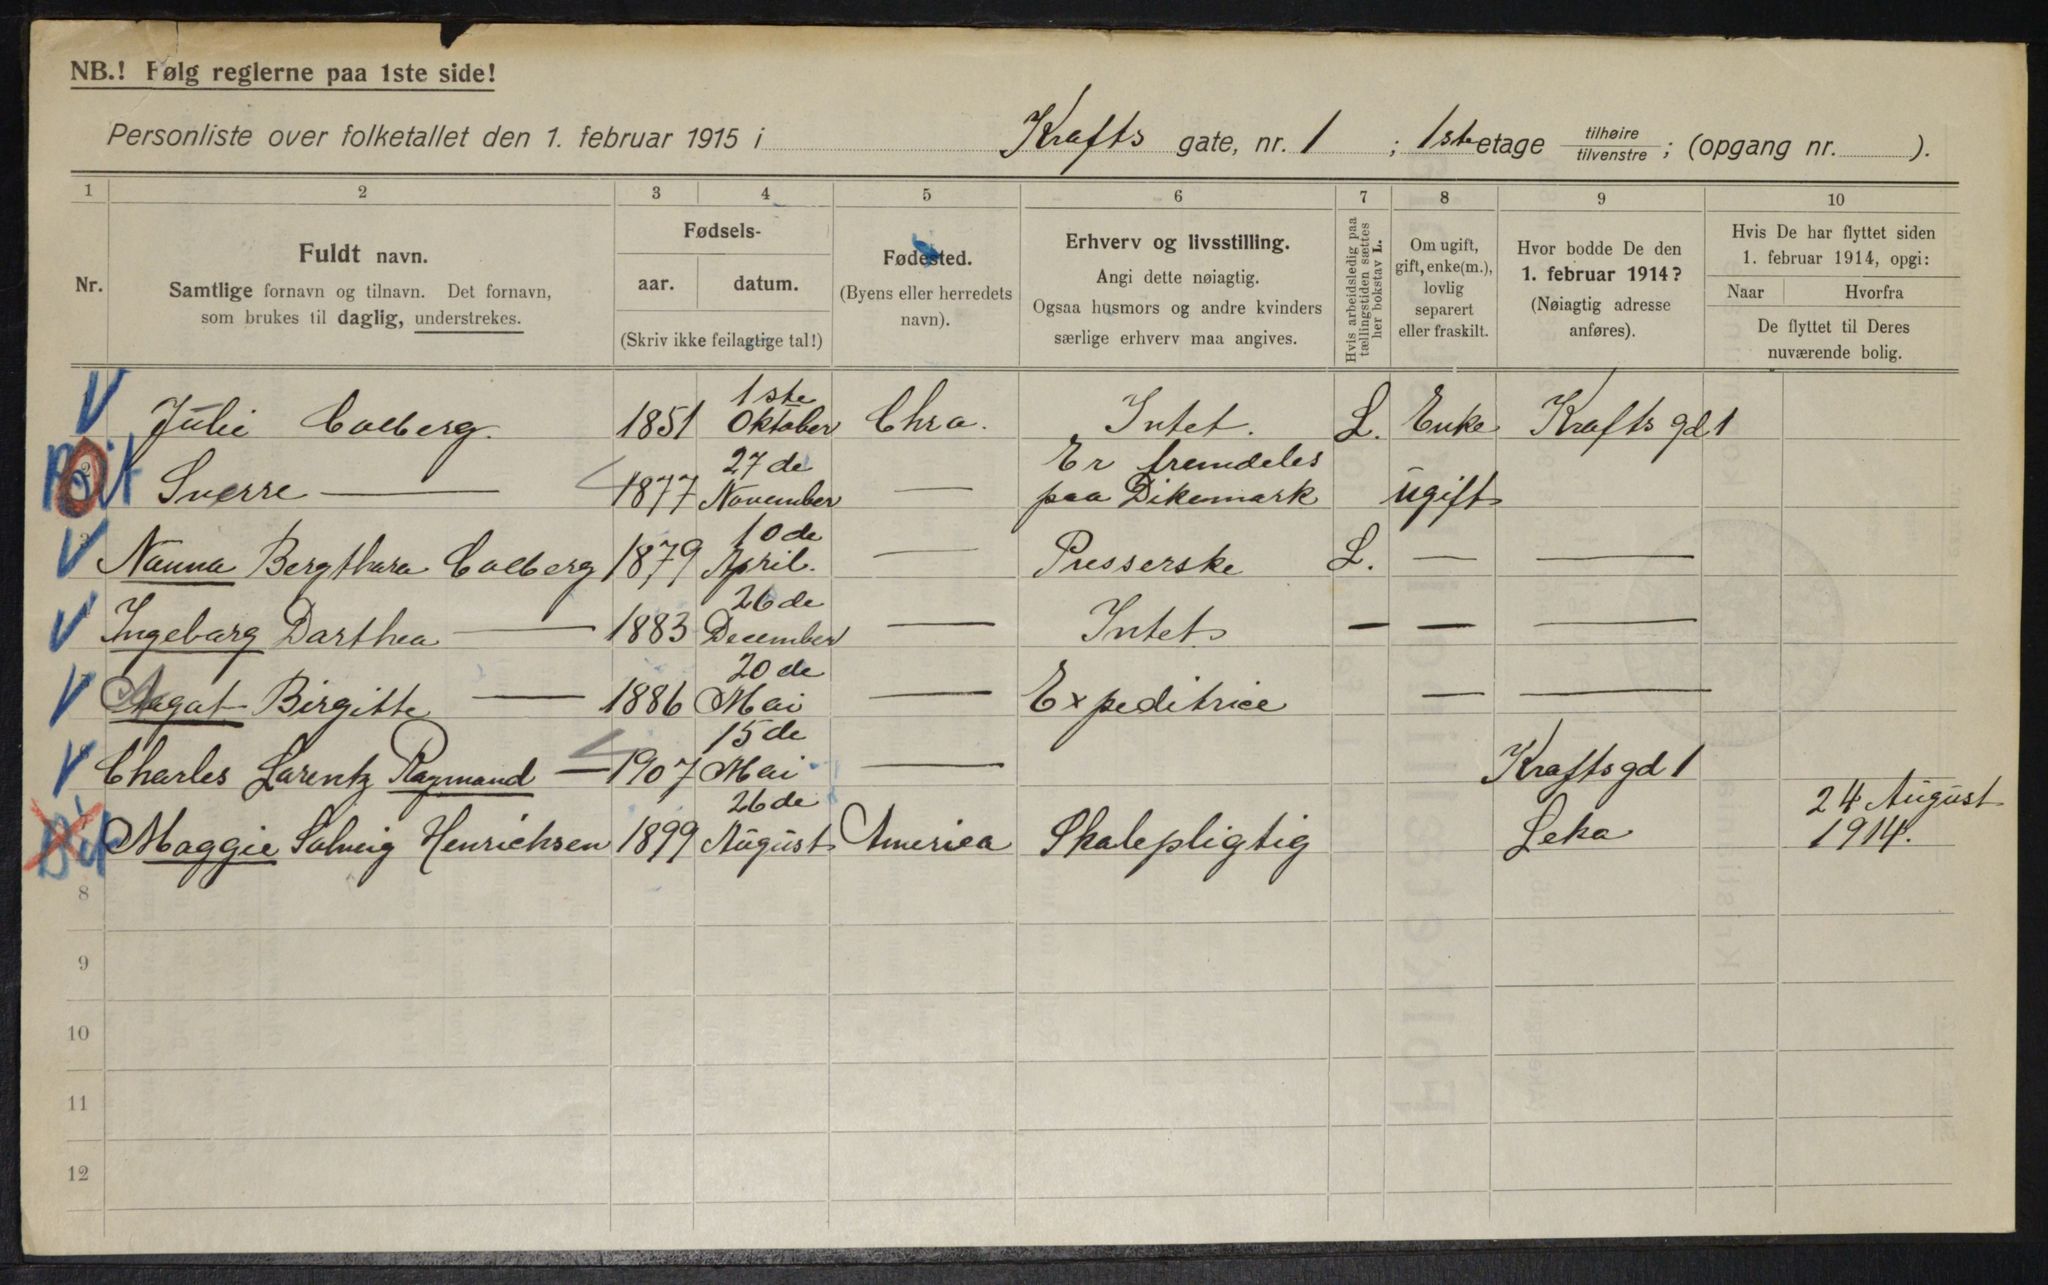 NB.! Følg reglerne paa 1ste side!
Personliste over folketallet den 1. februar 1915 i Krafts gate, nr. 1 ; 1ste etage tilhøire / tilvenstre ; (opgang nr. ).
1 2 3 4 5 6 7 8 9 10
Nr.
Fuldt navn.
Samtlige fornavn og tilnavn. Det fornavn,
som brukes til daglig, understrekes.
Fødsels-
aar. datum.
(Skriv ikke feilagtige tal!)
Fødested.
(Byens eller herredets
navn).
Erhverv og livsstilling.
Angi dette nøiagtig.
Ogsaa husmors og andre kvinders
særlige erhverv maa angives.
Hvis arbeidsledig paa
tællingstiden sættes
her bokstav L.
Om ugift,
gift, enke(m.),
lovlig
separert
eller fraskilt.
Hvor bodde De den
1. februar 1914?
(Nøiagtig adresse
anføres).
Hvis De har flyttet siden
1. februar 1914, opgi:
Naar Hvorfra
De flyttet til Deres
nuværende bolig.
Julie Colberg. 1851 1ste Oktober Chra. Intet. L. Enke Krafts gd 1
Sverre — 1877 27de November — Er fremdeles paa Dikemark ugift
Nanna Bergthora Colberg 1879 10de April. — Presserske L. — —
Ingeborg Dorthea — 1883 26de December — Intet — — —
Aagot Birgitte — 1886 20de Mai — Expeditrice — —
Charles Lorentz Raymond — 1907 15de Mai — Krafts gd 1
Maggie Solveig Henrichsen 1899 26de August America Skolepligtig Leka 24 August 1914.
8
9
10
11
12